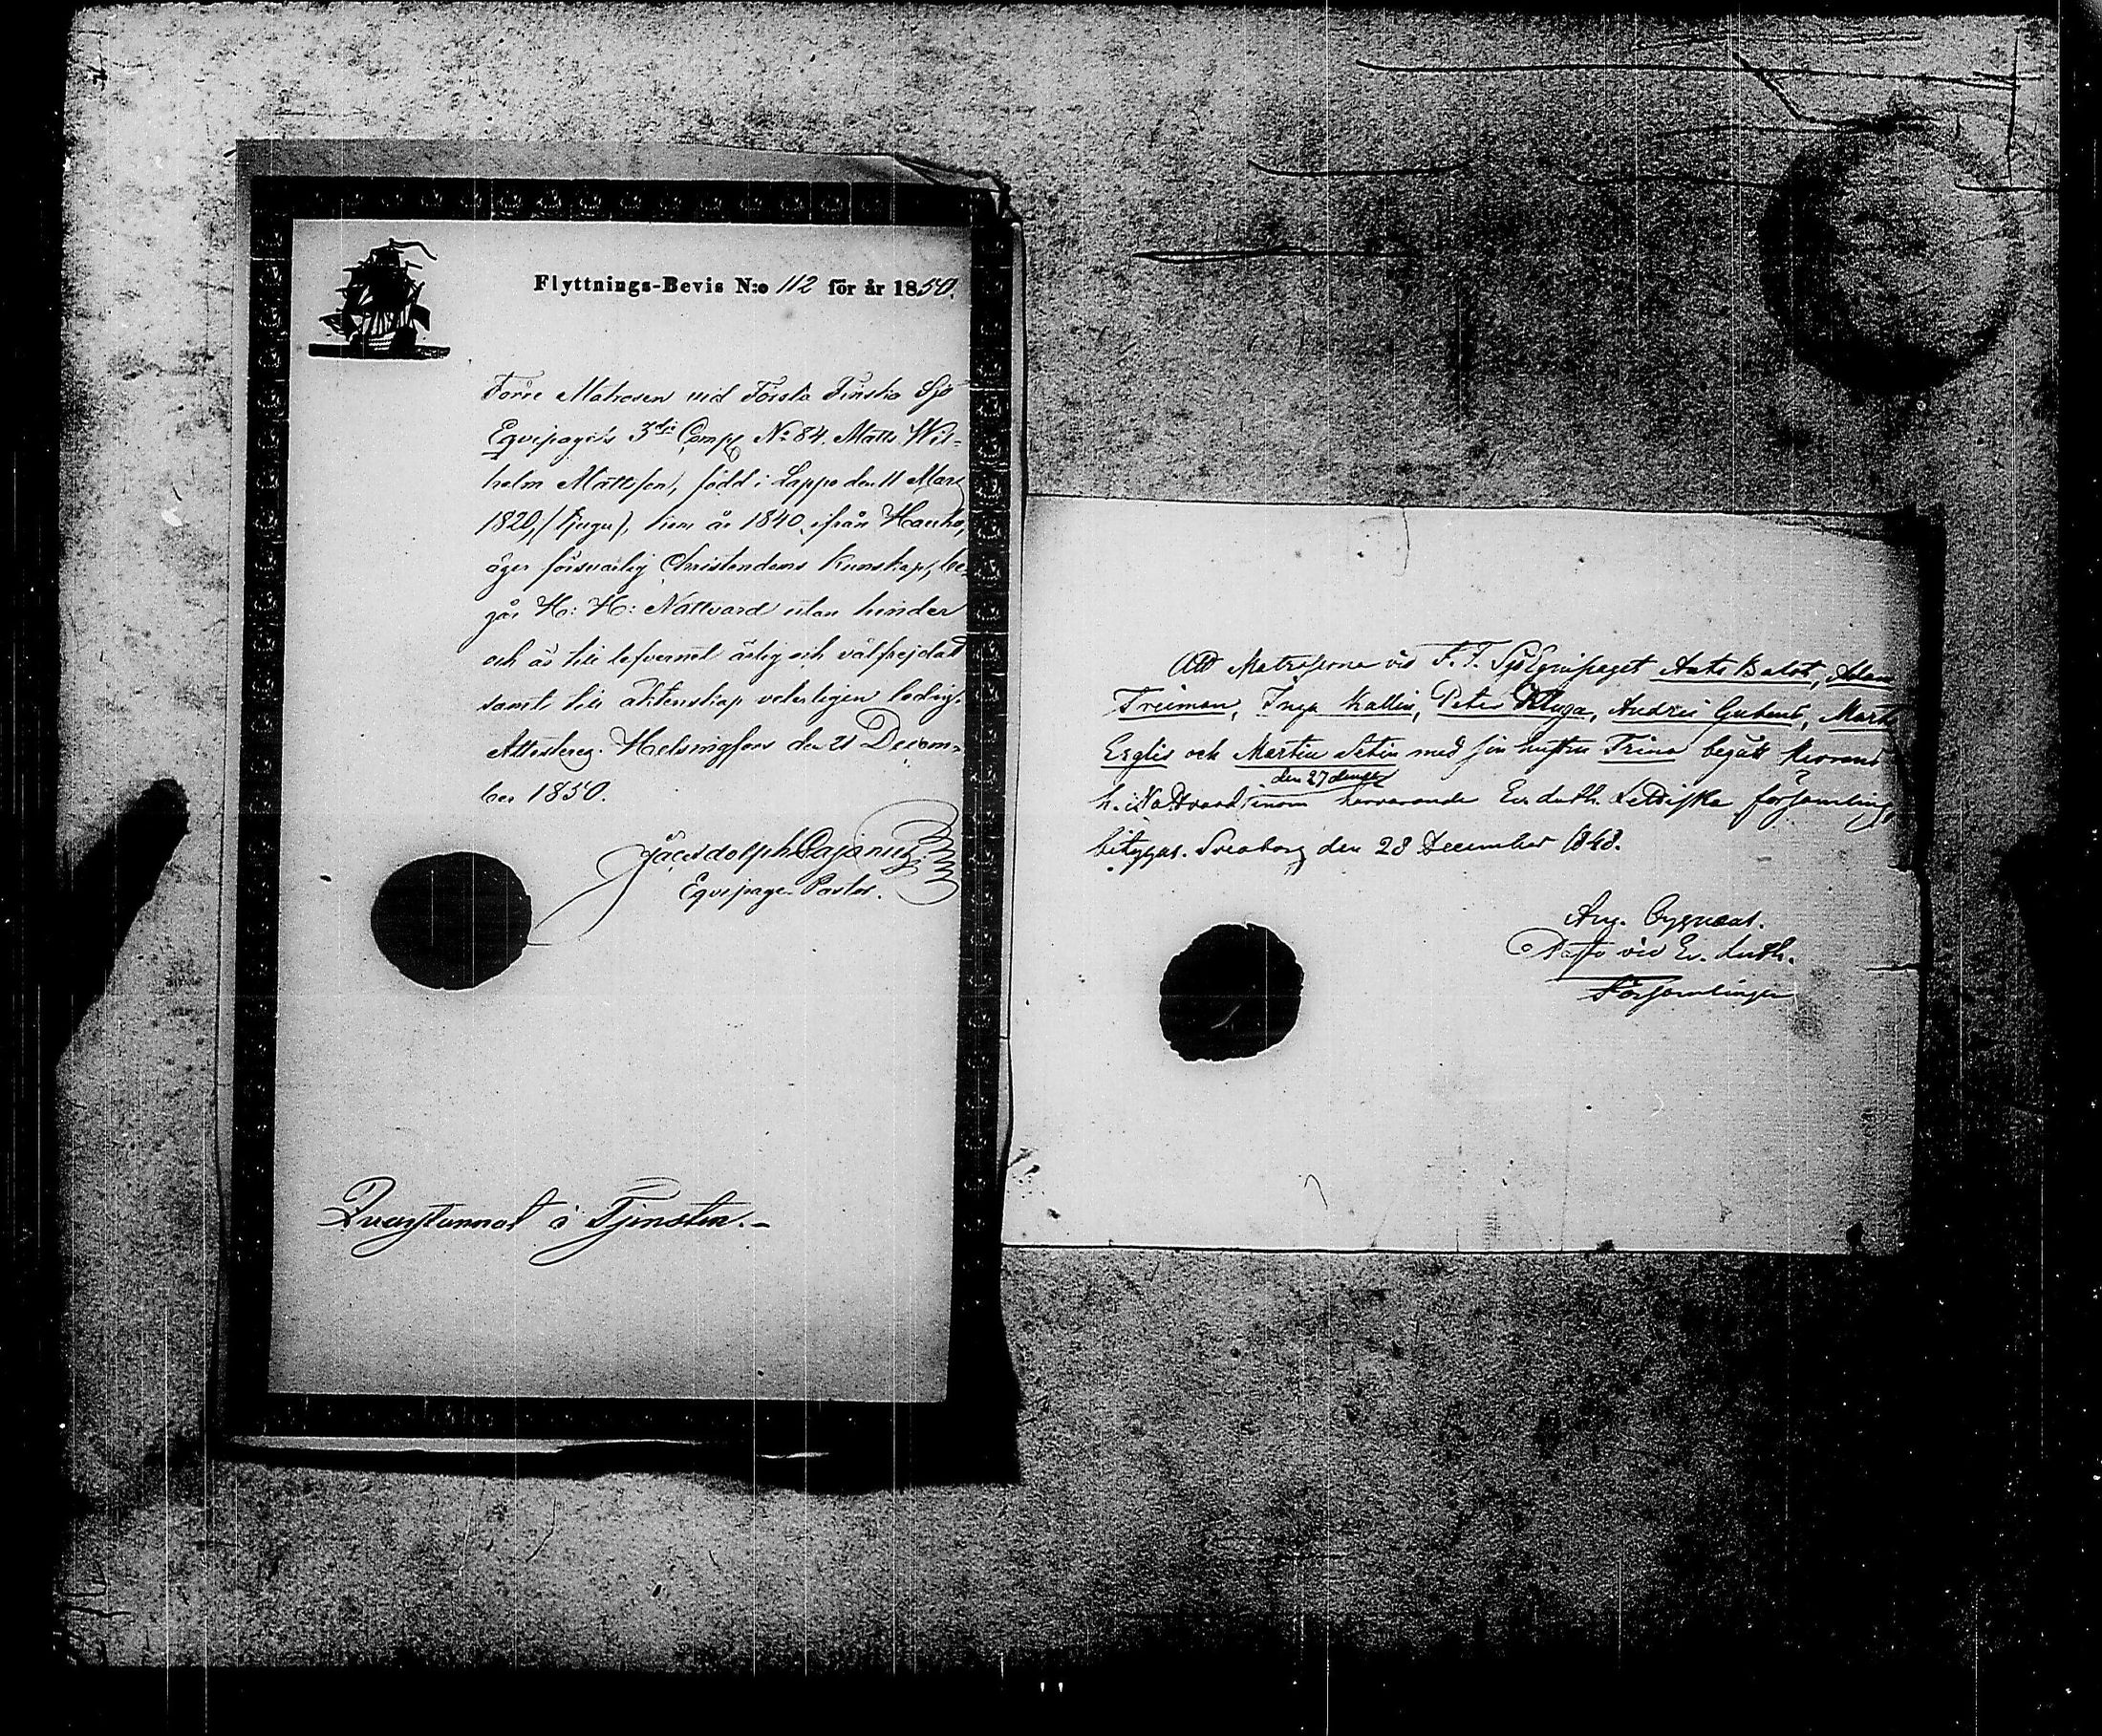 Flyttnings-Bevis N:o 112 för år 1850.
Förre Matrosen vid Första Finska Sjö
Eqvipagets 3dje Comp. No 84, Matts Wil-
helm Mattsson, född i Lappo den 11 Mars
1820, (tjugu), kom år 1840 ifrån Hauho,
äger försvarlig Christendoms Kunskap, be-
går H: H: Nattvard utan hinder
och är till lefvernet ärlig och välfrejdad
samt till äktenskap veterligen ledig.
Attesterar. Helsingfors den 21 Decem-
ber 1850.
Jac Adolph Cajanus
Eqvipage-Pastor.
Qvarstannat i Tjensten.-
Att Matroserna vid F. F. SjöEqvipaget Ants Balod, Adam
Freiman, Inga Kallin, Peter Kluga, Andrei Gubend, Mart
Erglis och Martin Setin med sin hustru Trina begått Herrans
den 27 dennes
h. Nattvard inom härvarande Ev. Luth. Lettiska församling,
betygas. Sveaborg den 28 December 1848.
Aug. Cygnæus.
Pastor vid Ev. Luth.
Församlingen